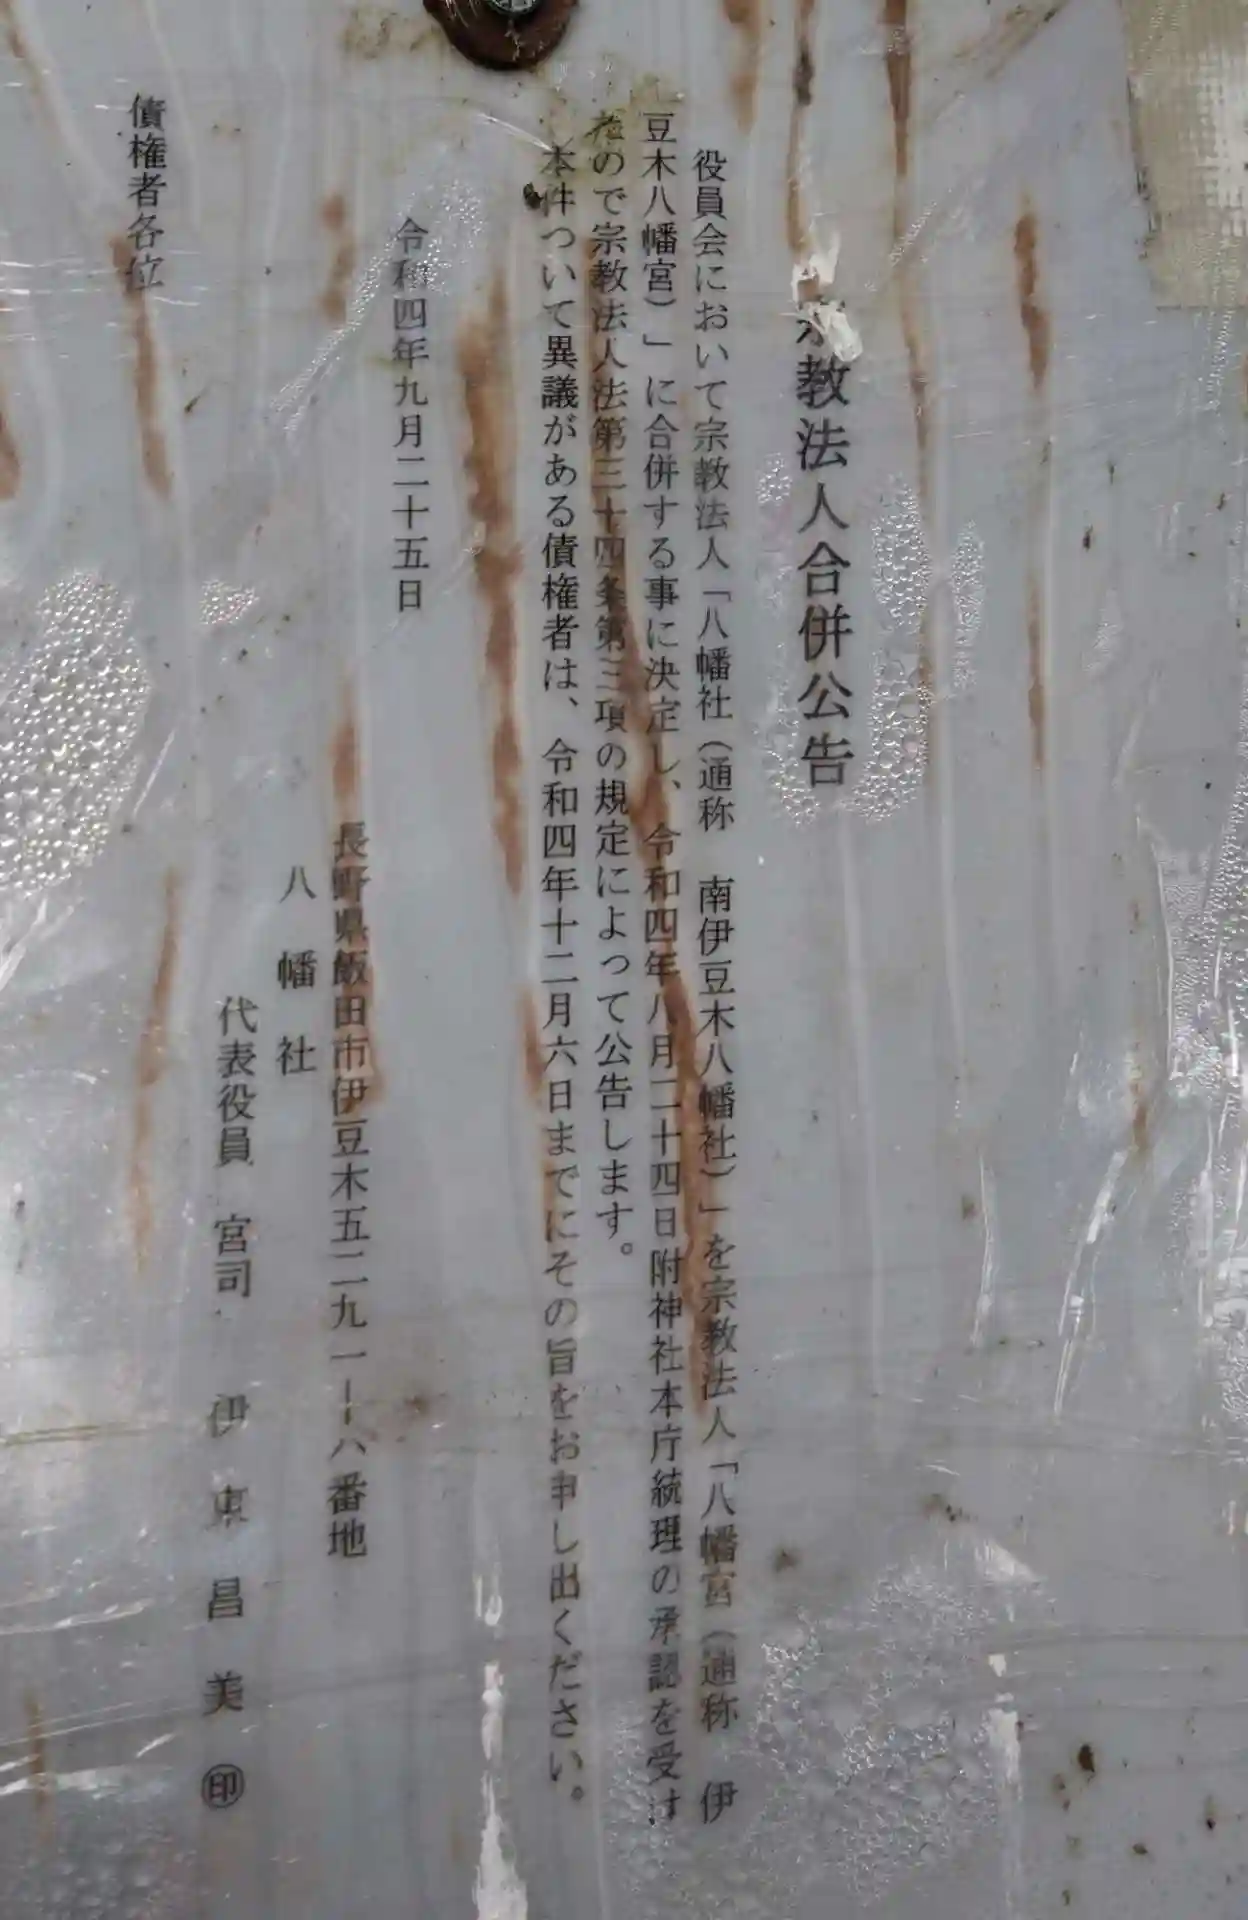 宗教法人合併公告
役員会において宗教法人「八幡社（通称　南伊豆木八幡社）」を宗教法人「八幡宮（通称　伊
豆木八幡宮）」に合併する事に決定し、令和四年八月二十四日附神社本庁統理の承認を受け
たので宗教法人法第三十四条第三項の規定によって公告します。
本件ついて異議がある債権者は、令和四年十二月六日までにその旨をお申し出ください。
令和四年九月二十五日
長野県飯田市伊豆木五二九一ー八番地
八幡社
代表役員　宮司　伊東昌美　㊞
債権者各位